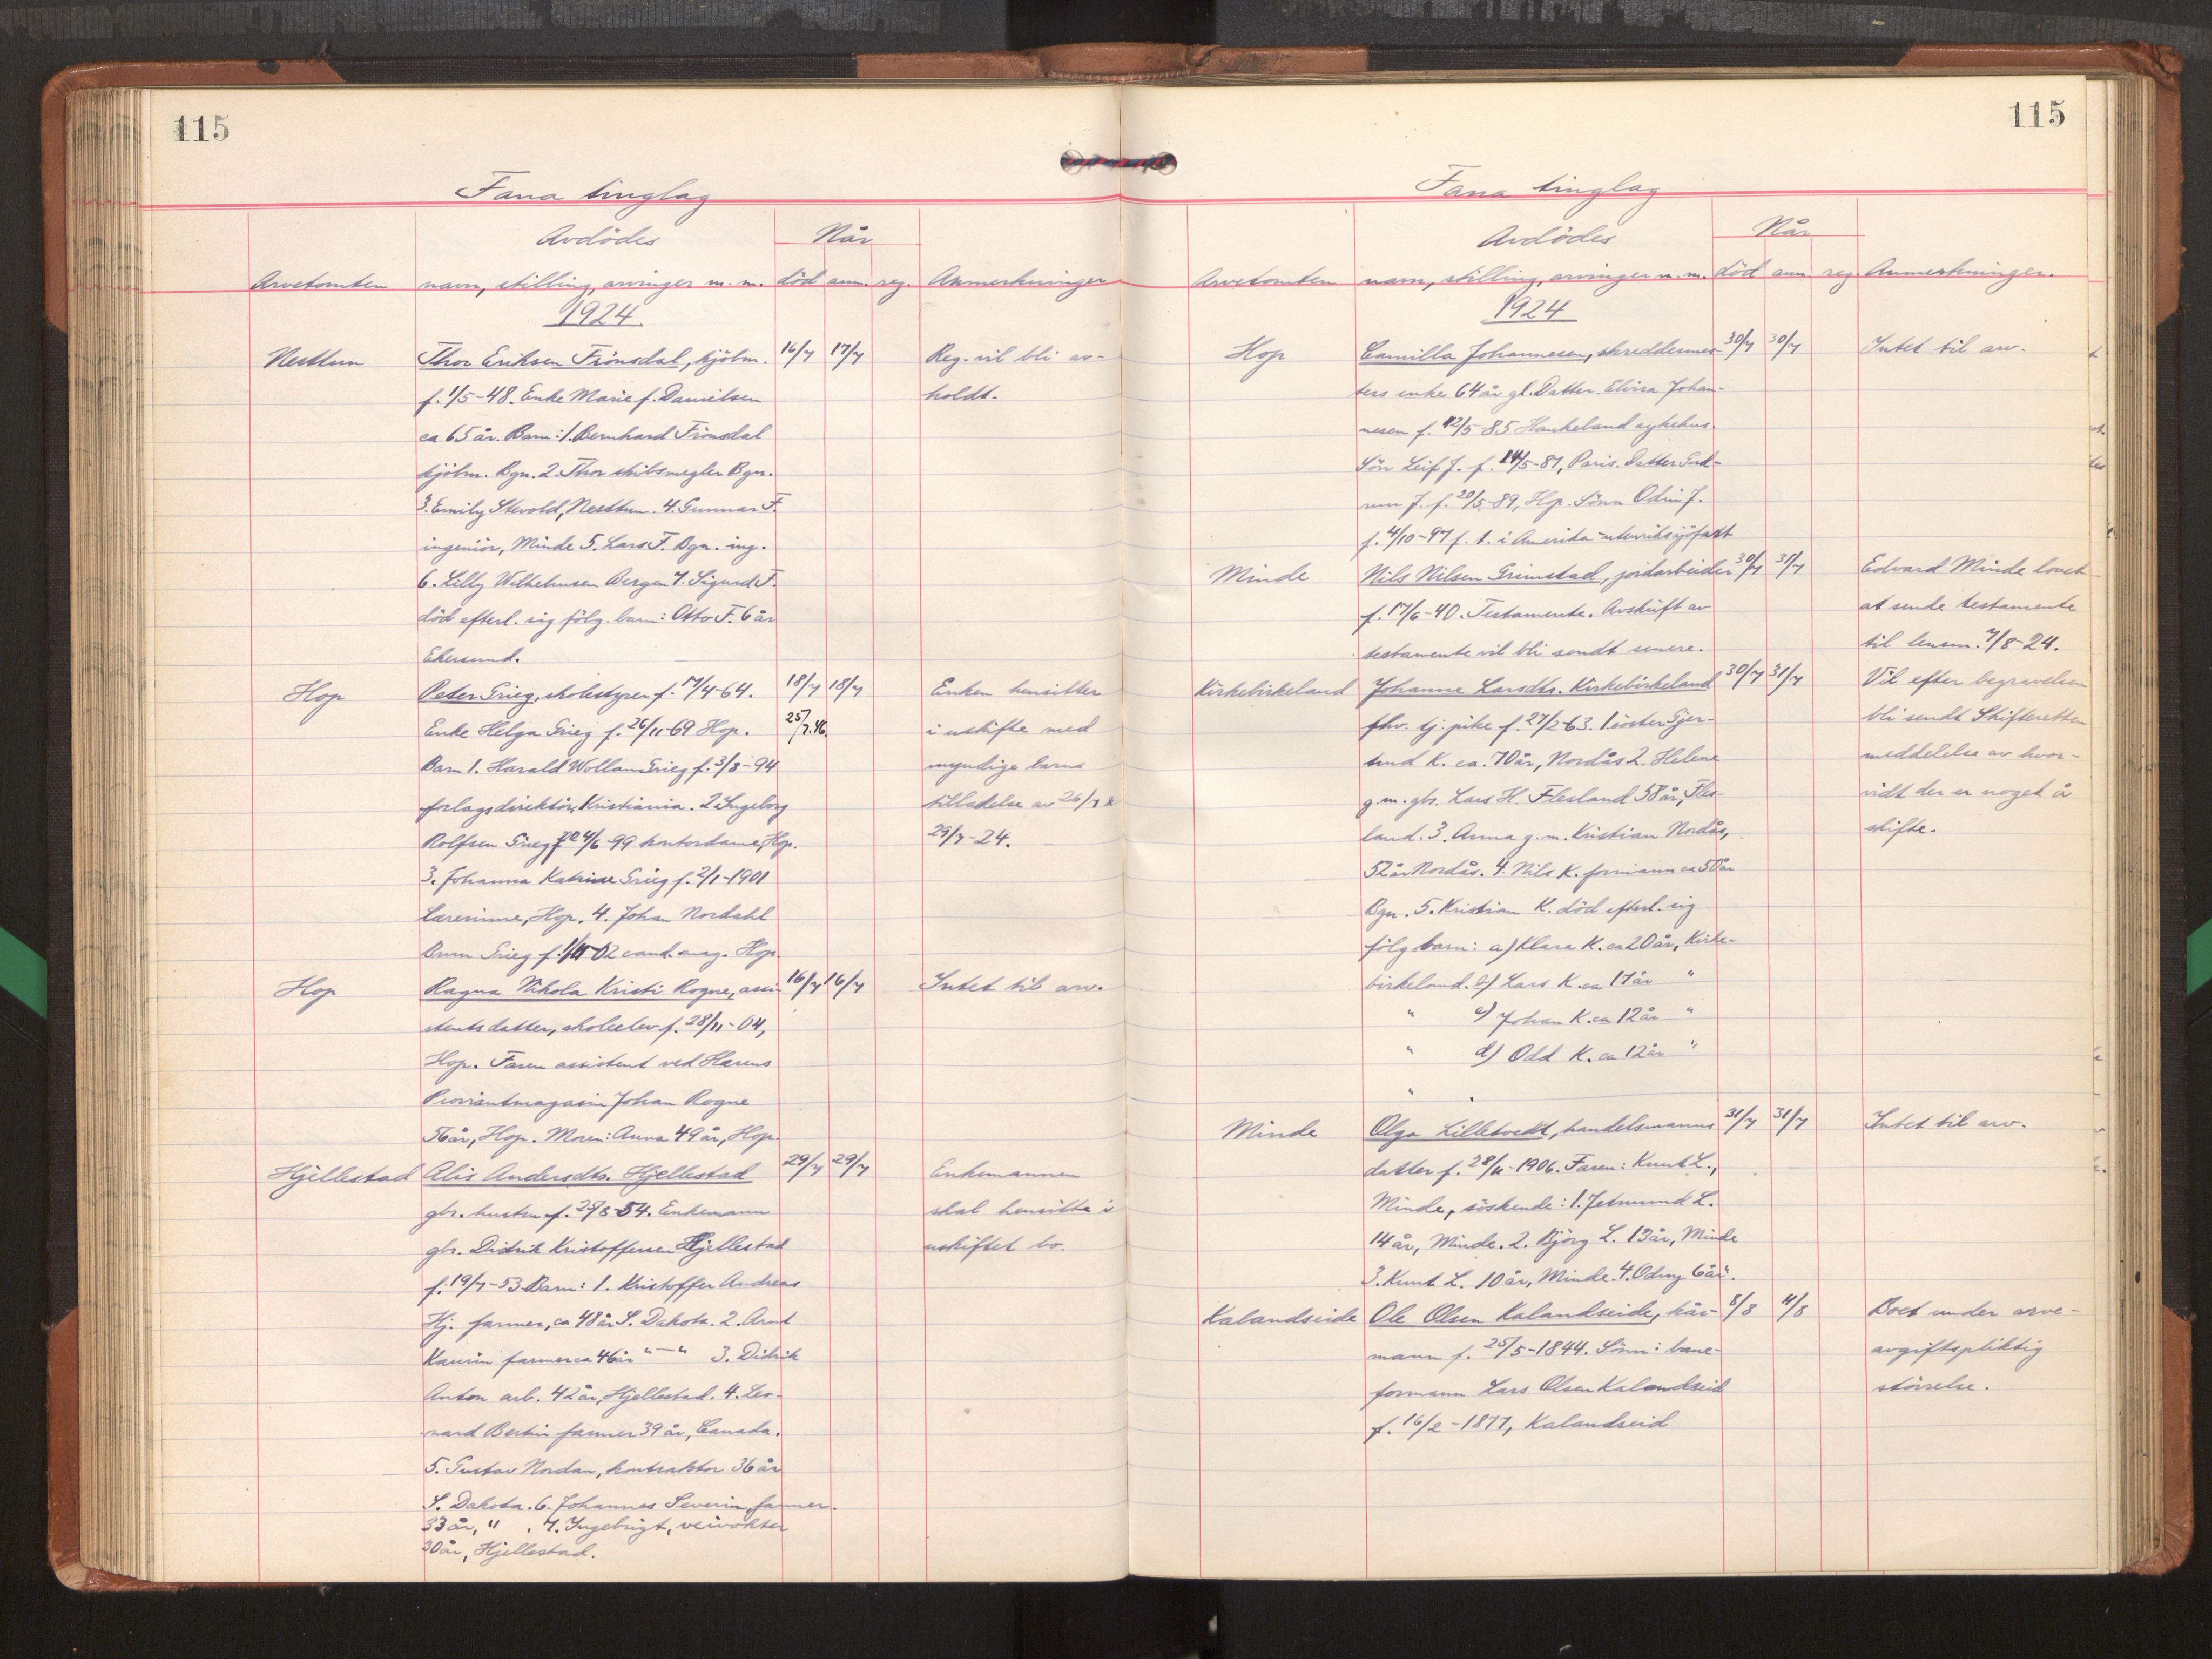 115
Fana tinglag
Avdödes
Når
Arvetomten navn, stilling, arvinger m. m. död anm. reg. Anmerkninger
1924
Nesttun Thor Eriksen Frönsdal, kjöbm. 16/7 17/7 Reg. vil bli av-
f. 1/5-48. Enke Marie f. Danielsen holdt.
ca 65 år. Barn: 1. Bernhard Frönsdal
kjöbm. Bgn. 2. Thor skibsmegler Bgn.
3. Emily Stevold, Nesttun. 4. Gunnar F.
ingeniör, Minde 5. Lars F. Bgn. ing.
6. Lilly Wilhelmsen Bergen 7. Sigurd F.
död efterl. sig fölg. barn: Otto F. 6 år
Ekersund.
Hop Peter Grieg, skolestyrer f. 17/4-64. 18/7 18/7 Enken hensitter
Enke Helga Grieg f. 26/11-69 Hop. 25/7.46. i uskifte med
Barn 1. Harald Wollan Grieg f. 3/8-94 myndige barns
forlagsdirektör, Kristiania. 2 Ingeborg tilladelse av 26/7 &
Rolfsen Grieg f 24/6-99 kontordame, Hop. 29/7-24.
3. Johanna Katrine Grieg f. 2/1-1901
Lærerinne, Hop. 4. Johan Nordahl
Brun Grieg f. 1/11-02 cand. mag. Hop.
Hop Ragna Nikola Kristi Rogne, assi 16/7 16/7 Intet til arv.
stents datter, skoleelev f. 28/11-04,
Hop. Faren assistent ved Hærens
Proviantmagasin Johan Rogne
56 år, Hop. Moren: Anna 49 år, Hop.
Hjellestad Alis Andersdtr. Hjellestad 29/7 29/7 Enkemannen
gbr. hustru f. 25/8-54. Enkemann skal hensitte i
gbr. Didrik Kristoffersen Hjellestad uskiftet bo.
f. 19/7-53. Barn: 1. Kristoffer Andreas
Hj. farmer, ca 48 år S. Dakota. 2. Arnt
Kaurin farmer ca 46 år " — " 3. Didrik
Anton arb. 42 år, Hjellestad. 4. Leo-
nard Bertin farmer 39 år, Canada.
5. Gustav Nordan, kontraktor 36 år
S. Dakota. 6. Johannes Severin, farmer.
33 år, " . 7. Ingebrigt, veivokter
30 år, Hjellestad.
115
Fana tinglag
Avdödes
Når
Arvetomten navn, stilling, arvinger m. m. död anm. reg. Anmerkninger.
1924
Hop Camilla Johannesen, skreddermes- 30/7 30/7 Intet til arv.
ters enke 64 år gl. Datter Elvira Johan-
nesen f. 12/5-85 Haukeland sykehus.
Sön Leif J. f. 14/5-87, Paris. Datter Gud-
run J. f. 20/5-89, Hop. Sönn Odin J.
f. 4/10-97 f. t. i Amerika-utenriksjöfart
Minde Nils Nilsen Grimstad, jordarbeider 30/7 31/7 Edvard Minde lovet
f. 17/6-40. Testamente. Avskrift av at sende testamente
testamente vil bli sendt senere. til lensm. 7/8-24.
Kirkebirkeland Johanne Larsdtr. Kirkebirkeland 30/7 31/7 Vil efter begravelsen
fhv. tj. pike f. 27/2-63. 1. söster Gjer- bli sendt Skifteretten
trud K. ca. 70 år, Nordås 2. Helene meddelelse av hvor-
g.m. gbr. Lars H. Flesland 58 år, Fles- vidt der er noget å
land. 3. Anna g. m. Kristian Nordås, skifte.
52 år Nordås. 4. Nils K. formann ca 50 år
Bgn. 5. Kristian K. död efterl. sig
fölg barn: a) Klara K. ca 20 år, Kirke-
birkeland. b) Lars K. ca 17 år "
" c) Johan K. ca 12 år "
" d) Odd K. ca 12 år "
"
Minde Olga Lilletvedt, handelsmanns 31/7 31/7 Intet til arv.
datter f. 28/11-1906. Faren: Knut L.,
Minde, söskende: 1. Jetmund L.
14 år, Minde. 2. Björg L. 13 år, Minde
3. Knut L. 10 år, Minde. 4. Odny 6 år.
Kalandseide Ole Olsen Kalandseide, kår- 8/8 11/8 Boet under arve-
mann f. 25/5-1844. Sönn: bane- avgiftspliktig
formann Lars Olsen Kalandseid störrelse.
f. 16/2-1877, Kalandseid